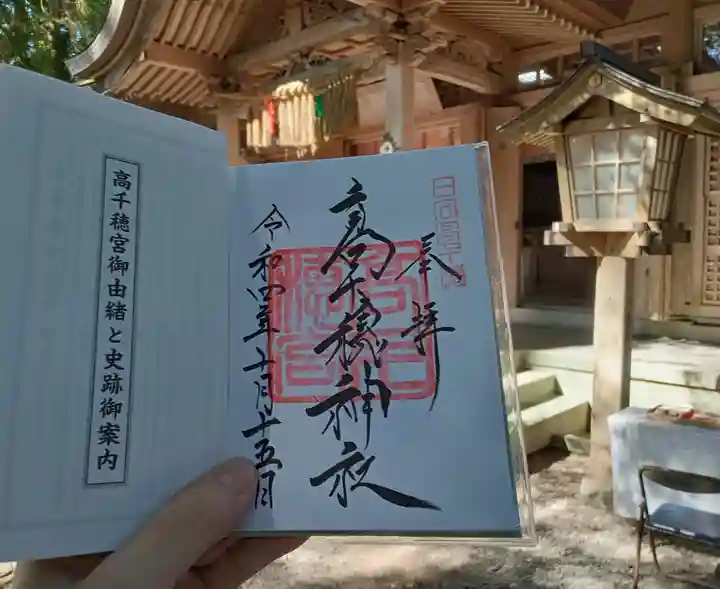 奉拝
高千穂神社
高千穂宮
令和四年十月十五日
高千穂宮御由緒と史跡御案内